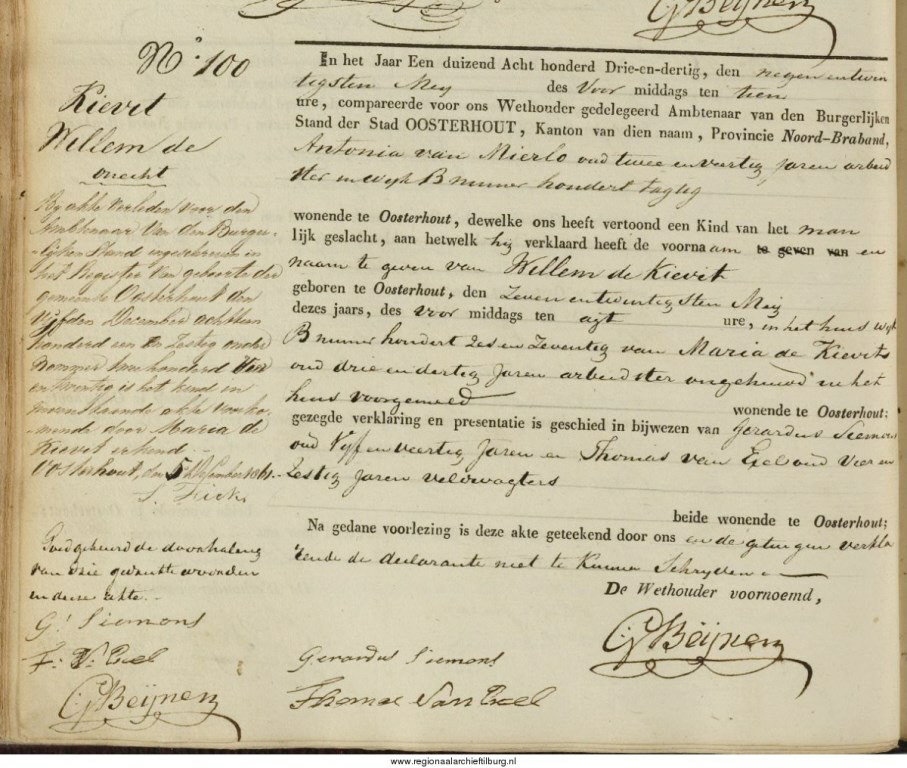 GBeijnen
N.° 100
Kievit
Willem de
onecht
By akte verleden voor den
Ambtenaar van den Burger-
lijken Stand ingeschreven in
het Register van geboorte der
gemeente Oosterhout den
Vijfden December achttien
honderd een en Zestig onder
Nommer honderd
en twintig is het kind in
nevenstaande akte voorko-
mende door Maria de
Kievit erkend.
Oosterhout, den 5 December 1861.
Goedgekeurd de doorhaling
van drie gedrukte woorden
in deze akte.
G! Siemons
T: V: Exel
GBeijnen
In het Jaar Een duizend Acht honderd Drie-en-dertig, den negen entwin
tigsten Mey des Voor middags ten tien
ure, compareerde voor ons Wethouder gedelegeerd Ambtenaar van den Burgerlijken
Stand der Stad OOSTERHOUT, Kanton van dien naam, Provincie Noord-Braband,
Antonia van Mierlo oud twee en veertig jaren arbeid
ster in wijk B nummer hondert tagtig
wonende te Oosterhout, dewelke ons heeft vertoond een Kind van het man
lijk geslacht, aan hetwelk hij verklaard heeft de voornaam te geven van en
naam te geven van Willem de Kievit
geboren te Oosterhout, den Zeven entwintigsten Mey
dezes jaars, des voor middags ten agt ure, in het huis wijk
B numer hondert Zes en Zeventig van Maria de Kievits
oud drie en dertig Jaren arbeidster ongehuwd in het
huis voorgemeld wonende te Oosterhout:
gezegde verklaring en presentatie is geschied in bijwezen van Gerardus Siemons
oud Vijf en veertig Jaren en Thomas van Exel oud Vier en
Zestig Jaren veldwagters
beide wonende te Oosterhout;
Na gedane voorlezing is deze akte geteekend door ons en de getuigen verkla
rende de declarante niet te kunnen Schryven
De Wethouder voornoemd,
GBeijnen
Gerardus Siemons
Thomas Van Exel
www.regionaalarchieftilburg.nl